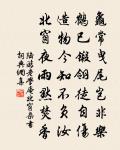 龜常曳尾豈非樂
鶴已鎩翎徒自傷
造物今知不負汝
北窗夜雨默焚香
陸游老學庵北窗雜書
詞典網喜